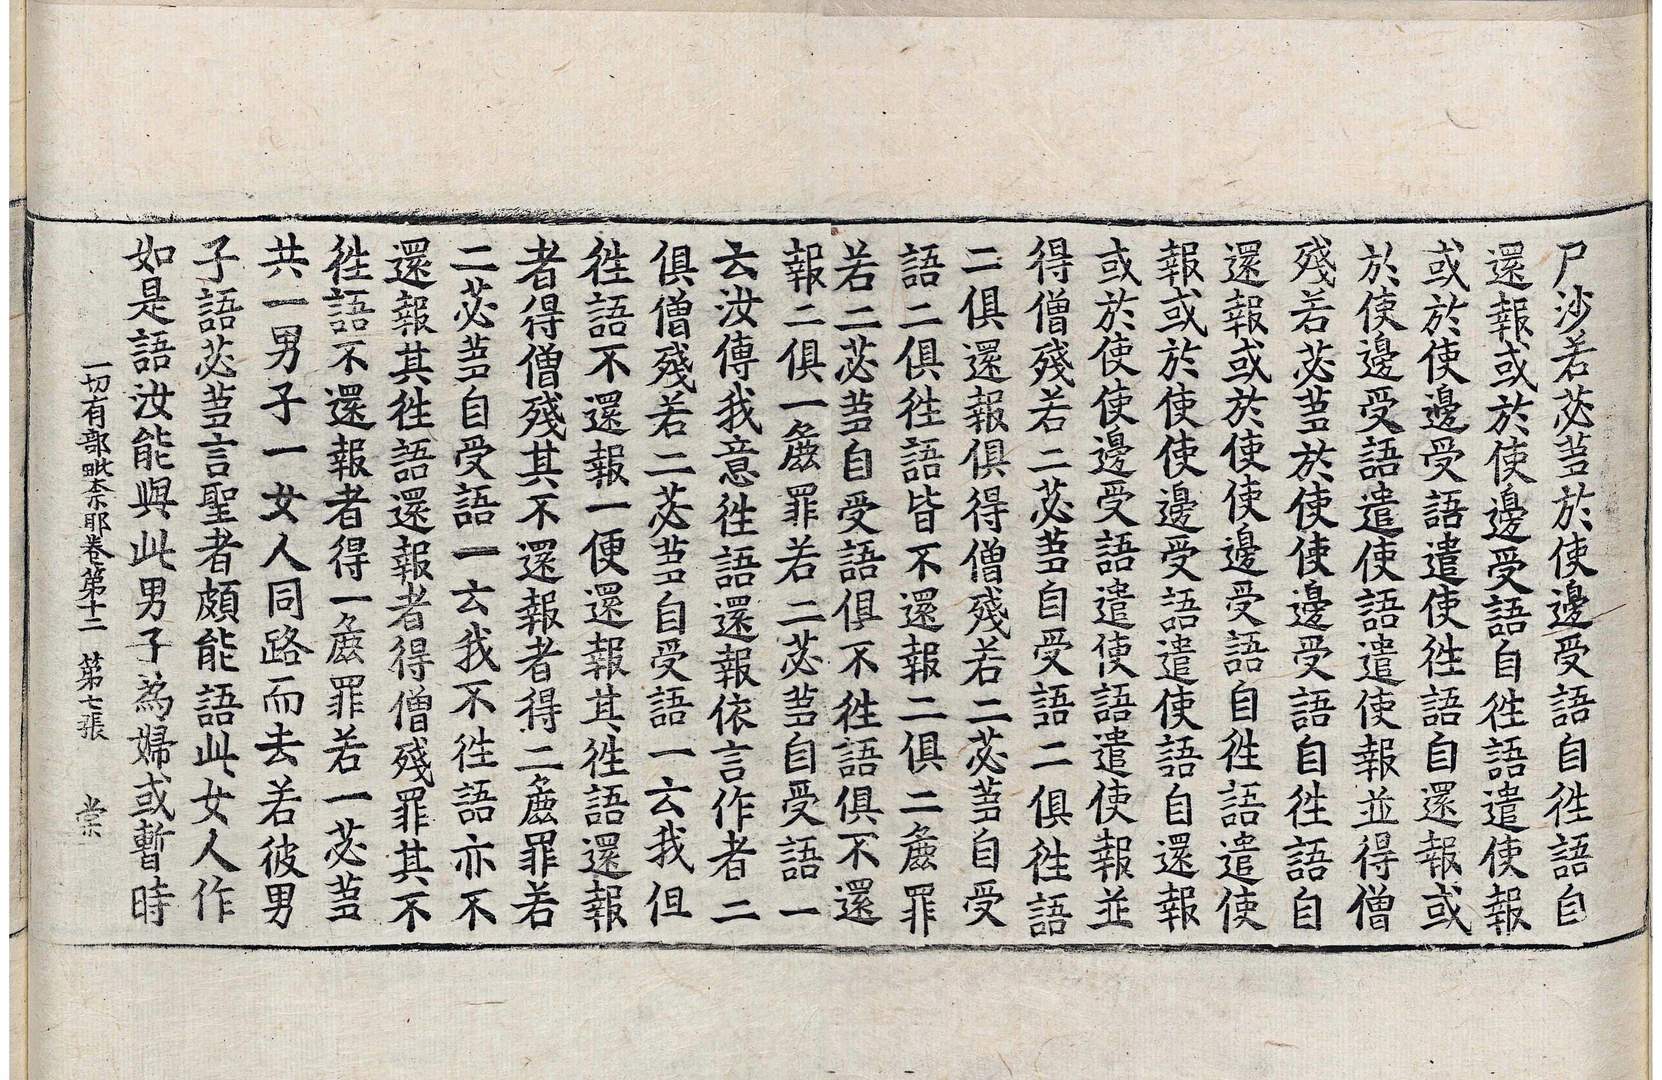 尸沙若苾蒭於使邊受語自徃語自
還報或於使邊受語自徃語遣使報
或於使邊受語遣使徃語自還報或
於使邊受語遣使語遣使報並得僧
殘若苾蒭於使使邊受語自徃語自
還報或於使使邊受語自徃語遣使
報或於使使邊受語遣使語自還報
或於使使邊受語遣使語遣使報並
得僧殘若二苾蒭自受語二俱徃語
二俱還報俱得僧殘若二苾蒭自受
語二俱徃語皆不還報二俱二麁罪
若二苾蒭自受語俱不徃語俱不還
報二俱一麁罪若二苾蒭自受語一
云汝傳我意徃語還報依言作者二
俱僧殘若二苾蒭自受語一云我但
徃語不還報一便還報其徃語還報
者得僧殘其不還報者得二麁罪若
二苾蒭自受語一云我不徃語亦不
還報其徃語還報者得僧殘罪其不
徃語不還報者得一麁罪若一苾蒭
共一男子一女人同路而去若彼男
子語苾蒭言聖者頗能語此女人作
如是語汝能與此男子為婦或暫時
一切有部毗奈耶卷第十二　第七張　棠